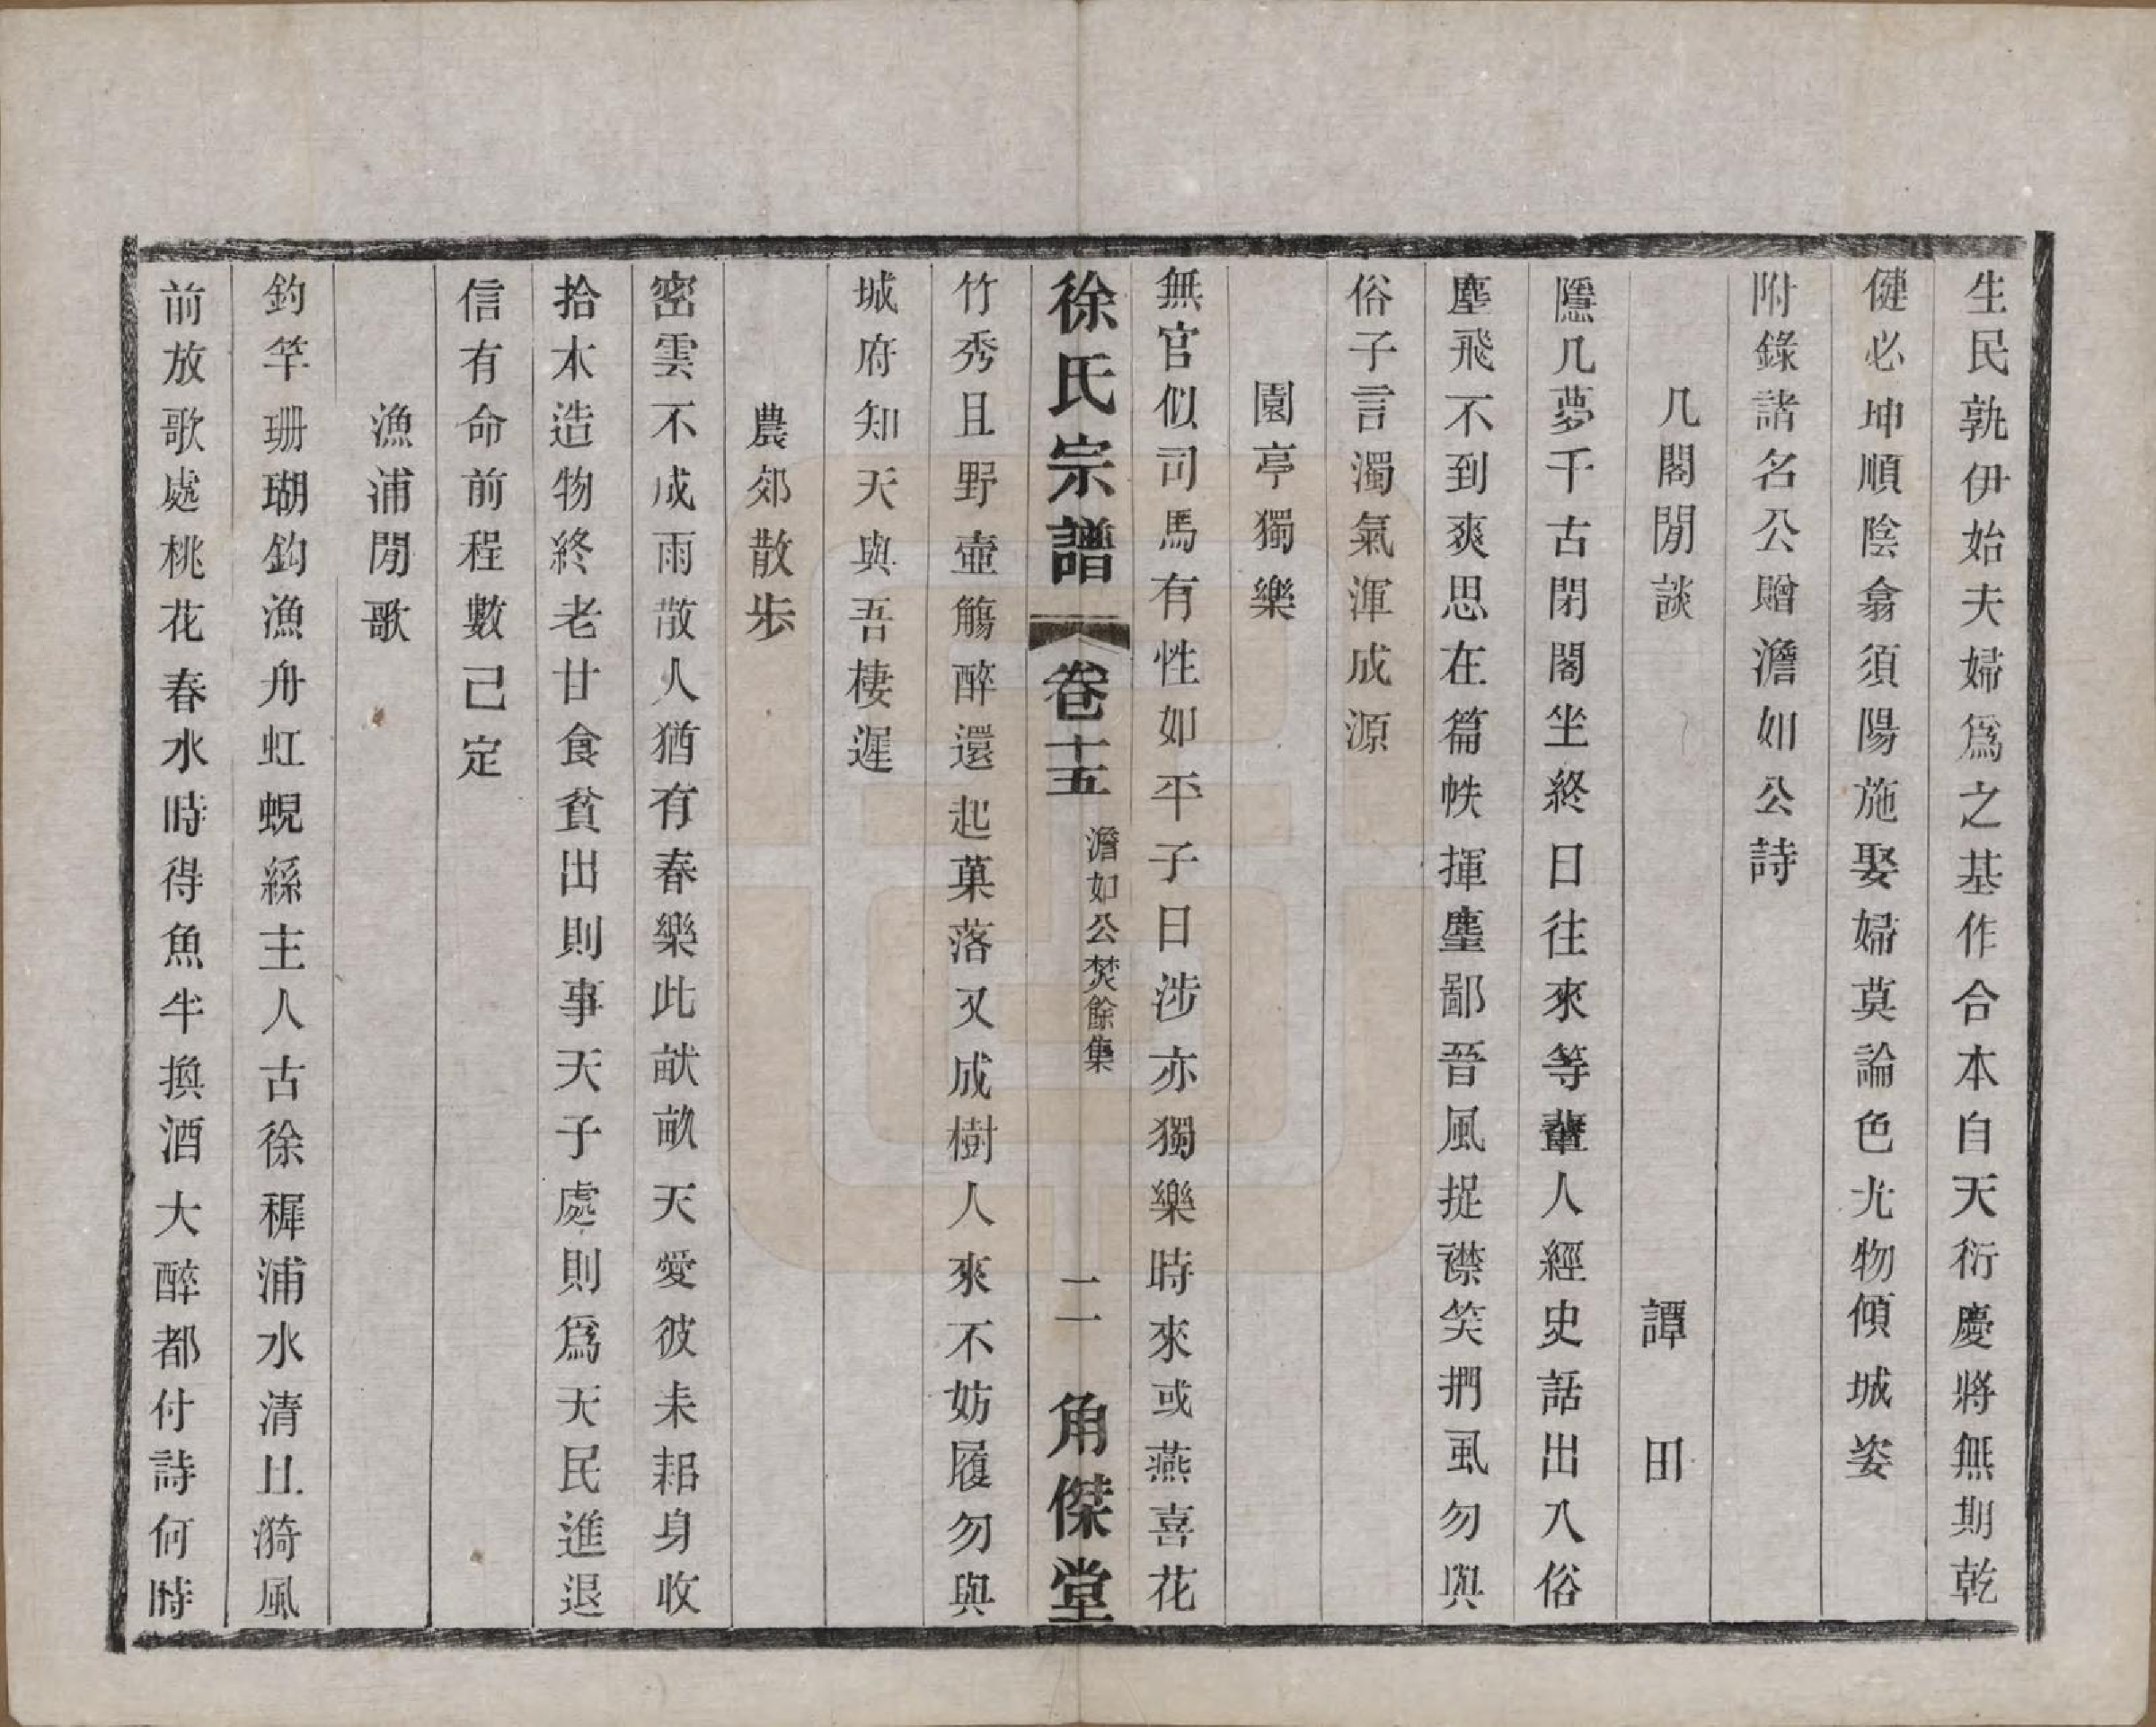 生民孰伊始夫婦爲之基作合本自天衍慶將無期乾
健必坤順陰翕須陽施娶婦莫論色尤物傾城姿
附錄諸名公贈澹如公詩
几閣閒談　譚田
隱几夢千古閉閣坐終日往來等輩人經史話出入俗
塵飛不到爽思在篇帙揮麈鄙晉風捉襟笑捫虱勿與
俗子言濁氣渾成源
園亭獨樂
無官似司馬有性如平子日涉亦獨樂時來或燕喜花
徐氏宗譜　卷十五　澹如公焚餘集　二　角傑堂
竹秀且野壺觴醉還起菓落又成樹人來不妨履勿與
城府知天與吾棲遲
農郊散步
密雲不成雨散人猶有春樂此畎畝天愛彼耒耜身收
拾木造物終老甘食貧出則事天子處則爲天民進退
信有命前程數已定
漁浦閒歌
釣竿珊瑚鈎漁舟虹蜺緜主人古徐穉浦水清且漪風
前放歌處桃花春水時得魚半換酒大醉都付詩何時